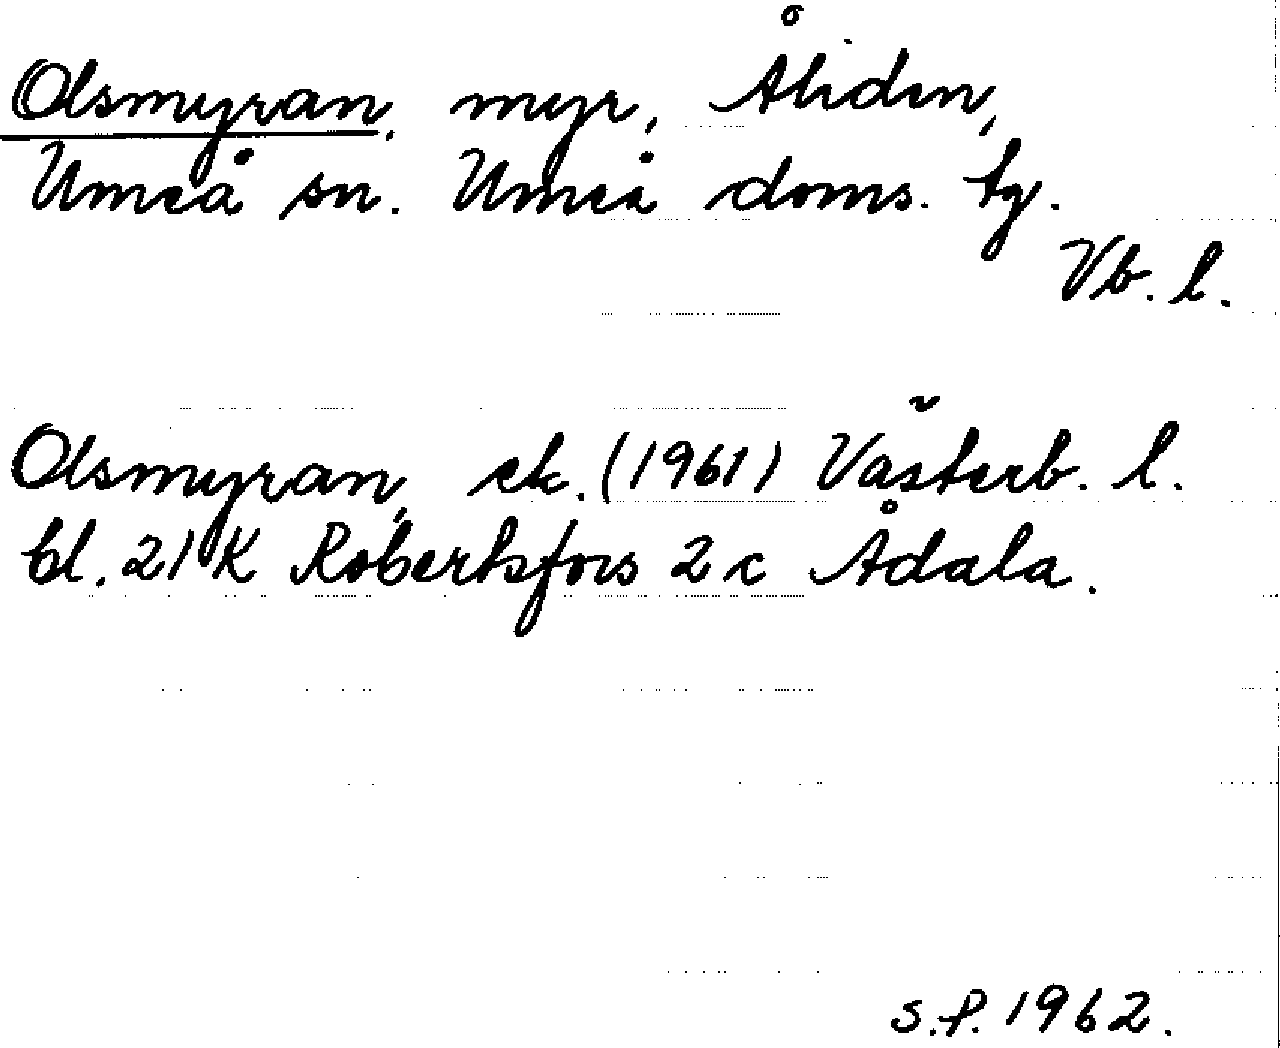 Olsmyran, myr, Åliden,
Umeå sn. Umeå doms. tg.
Vb. l.
Olsmyran, ek. (1961) Västerb. l.
bl. 21 K Robertsfors 2 c Ådala.
s.f. 1962.